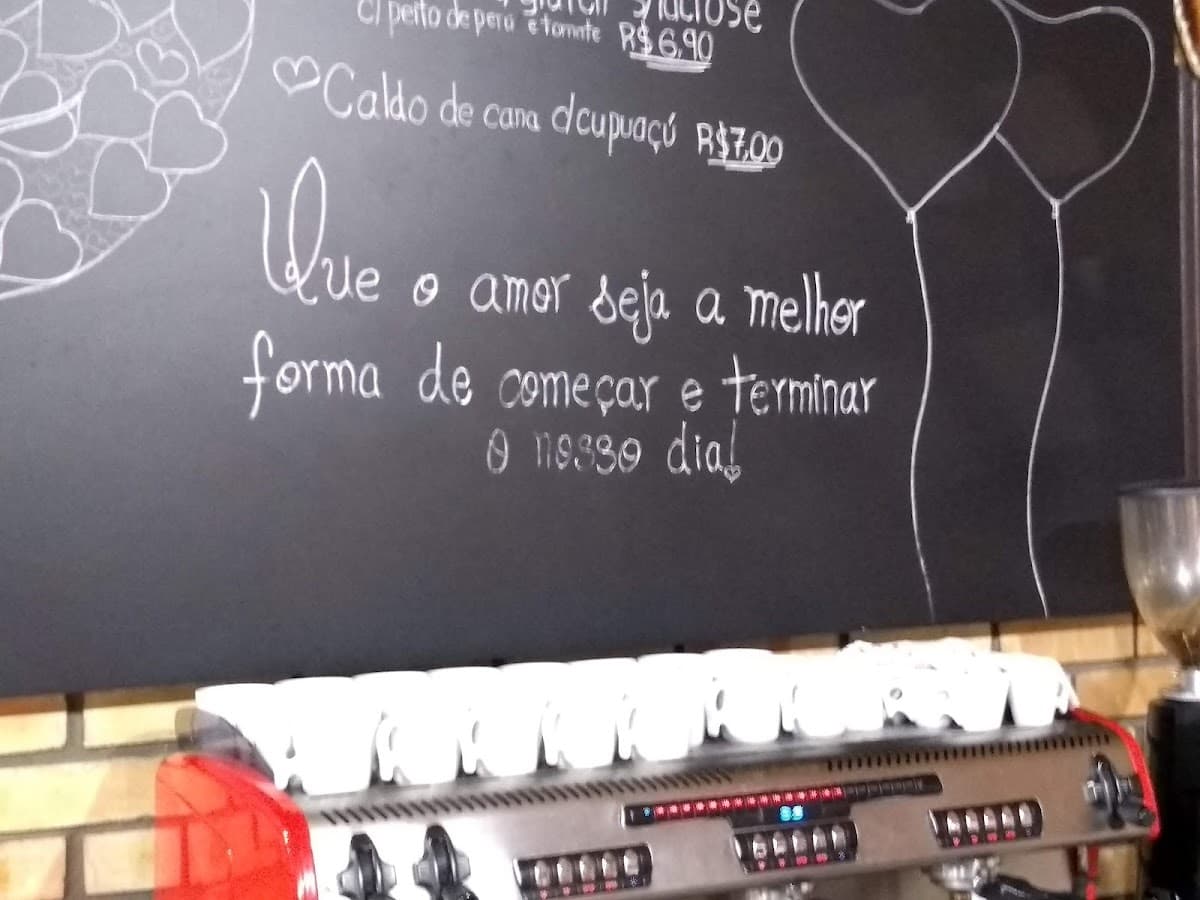 s/ lactose
c/ peito de peru e tomate R$ 6,90
Caldo de cana c/ cupuaçú R$7,00
Que o amor seja a melhor
forma de começar e terminar
o nosso dia!